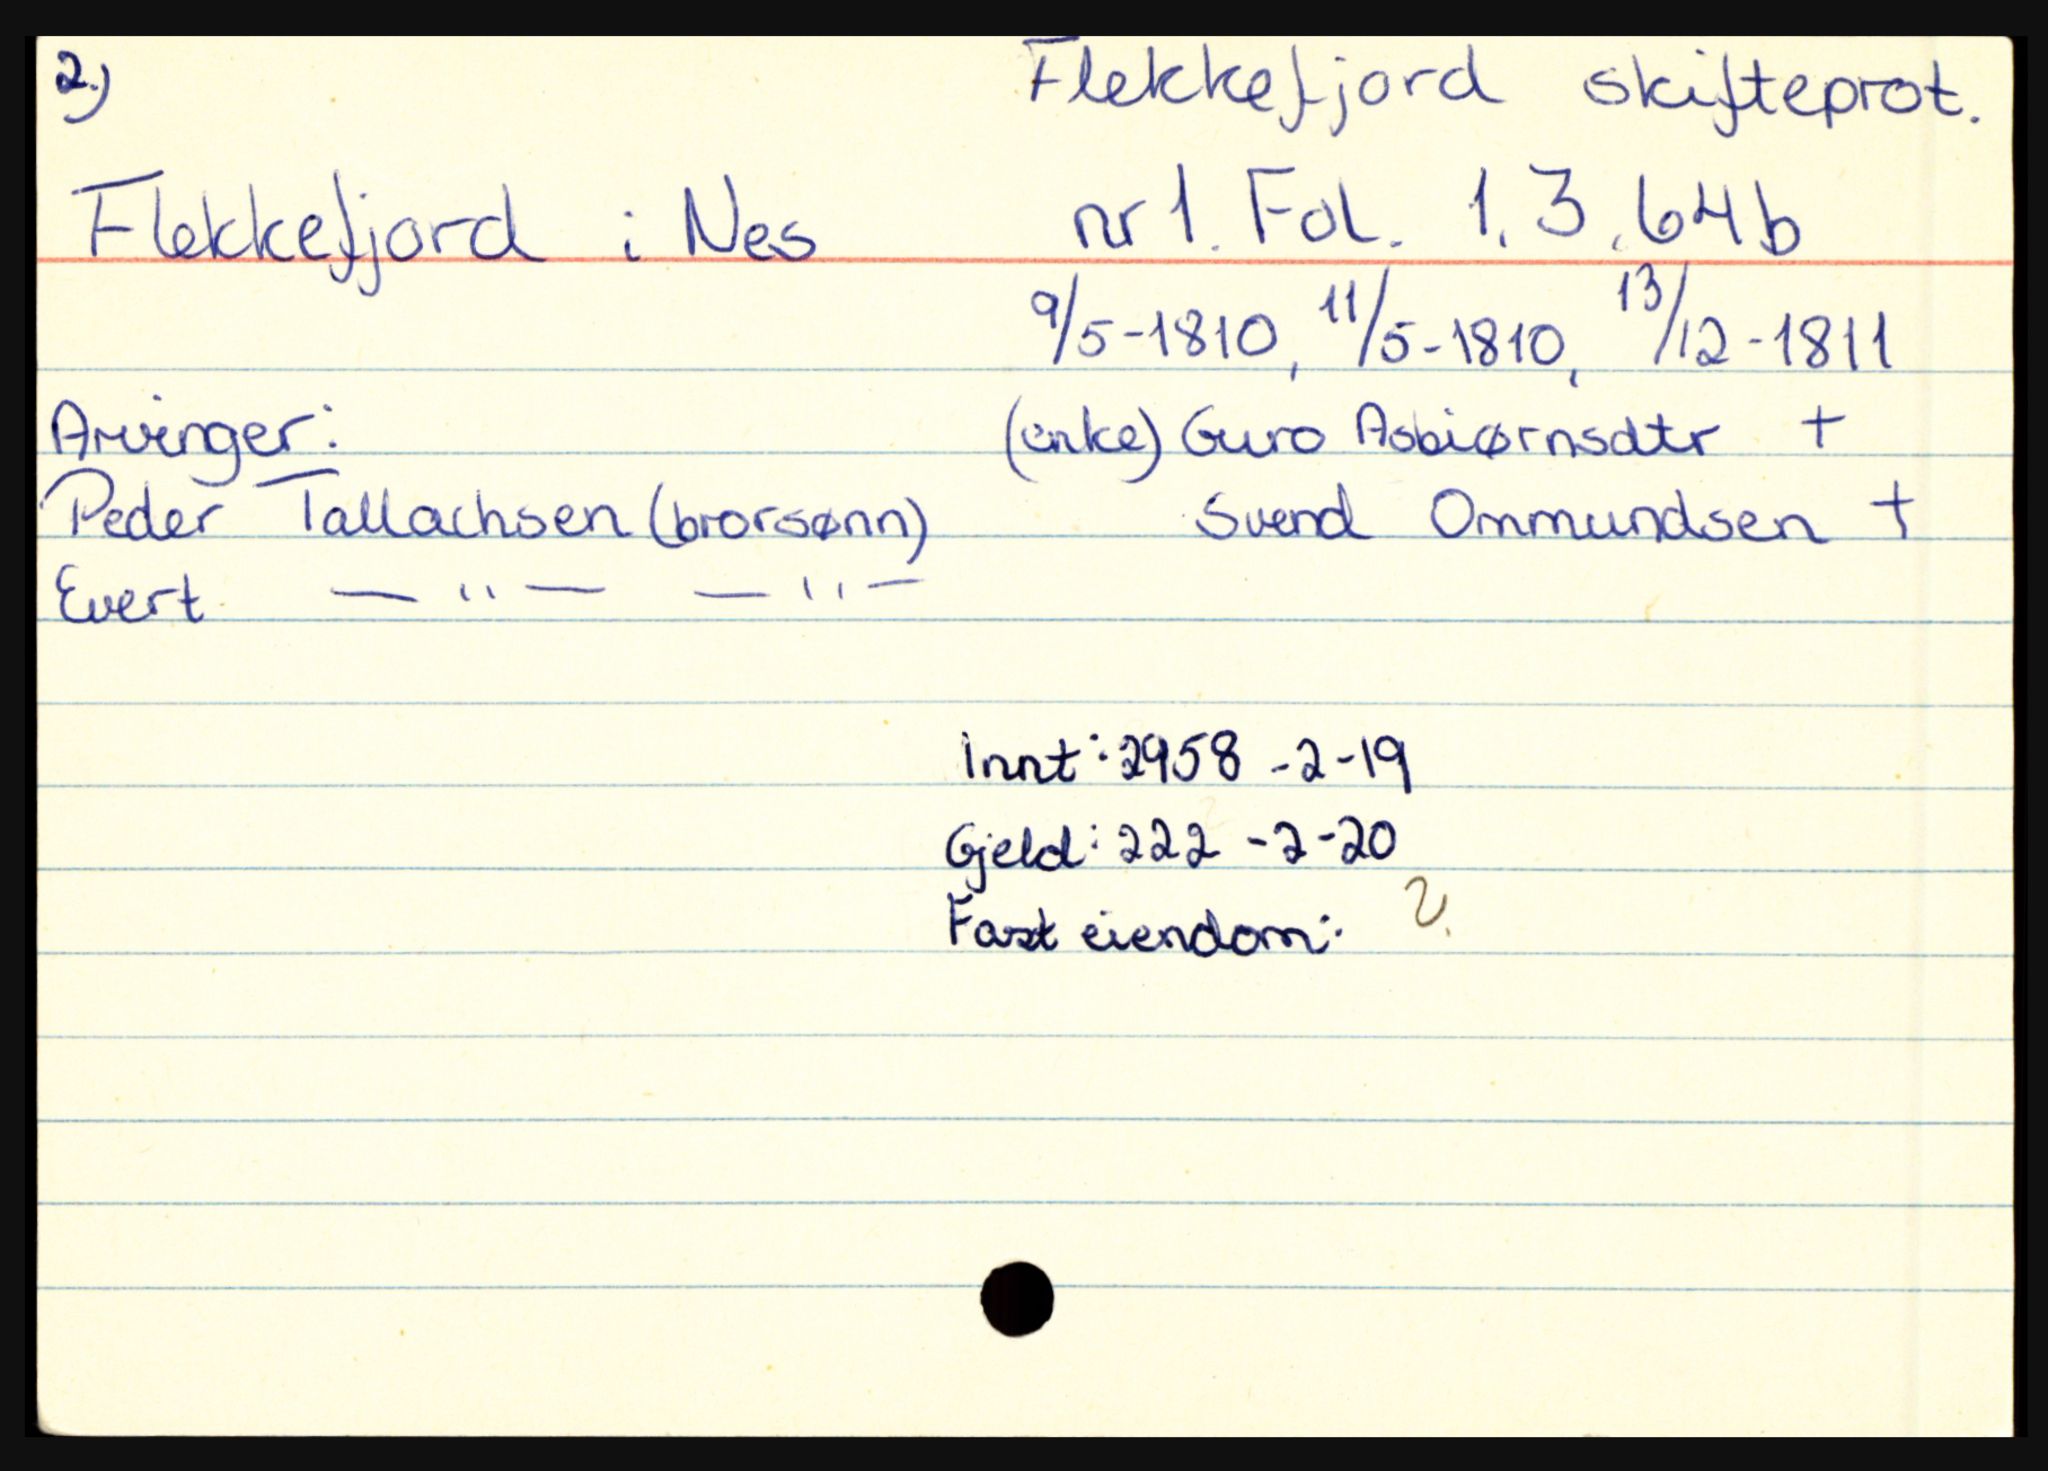 2.)
Flekkefjord skifteprot.
Flekkefjord i Nes
nr 1. Fol. 1, 3, 64b
9/5-1810, 11/5-1810, 13/12-1811
Arvinger:
(enke) Guro Asbiørnsdtr +
Peder Tallachsen (brorsønn)
Svend Ommundsen +
Evert — " — — " —
Innt: 2958 -2-19
Gjeld: 222 -2-20
Fast eiendom: ?